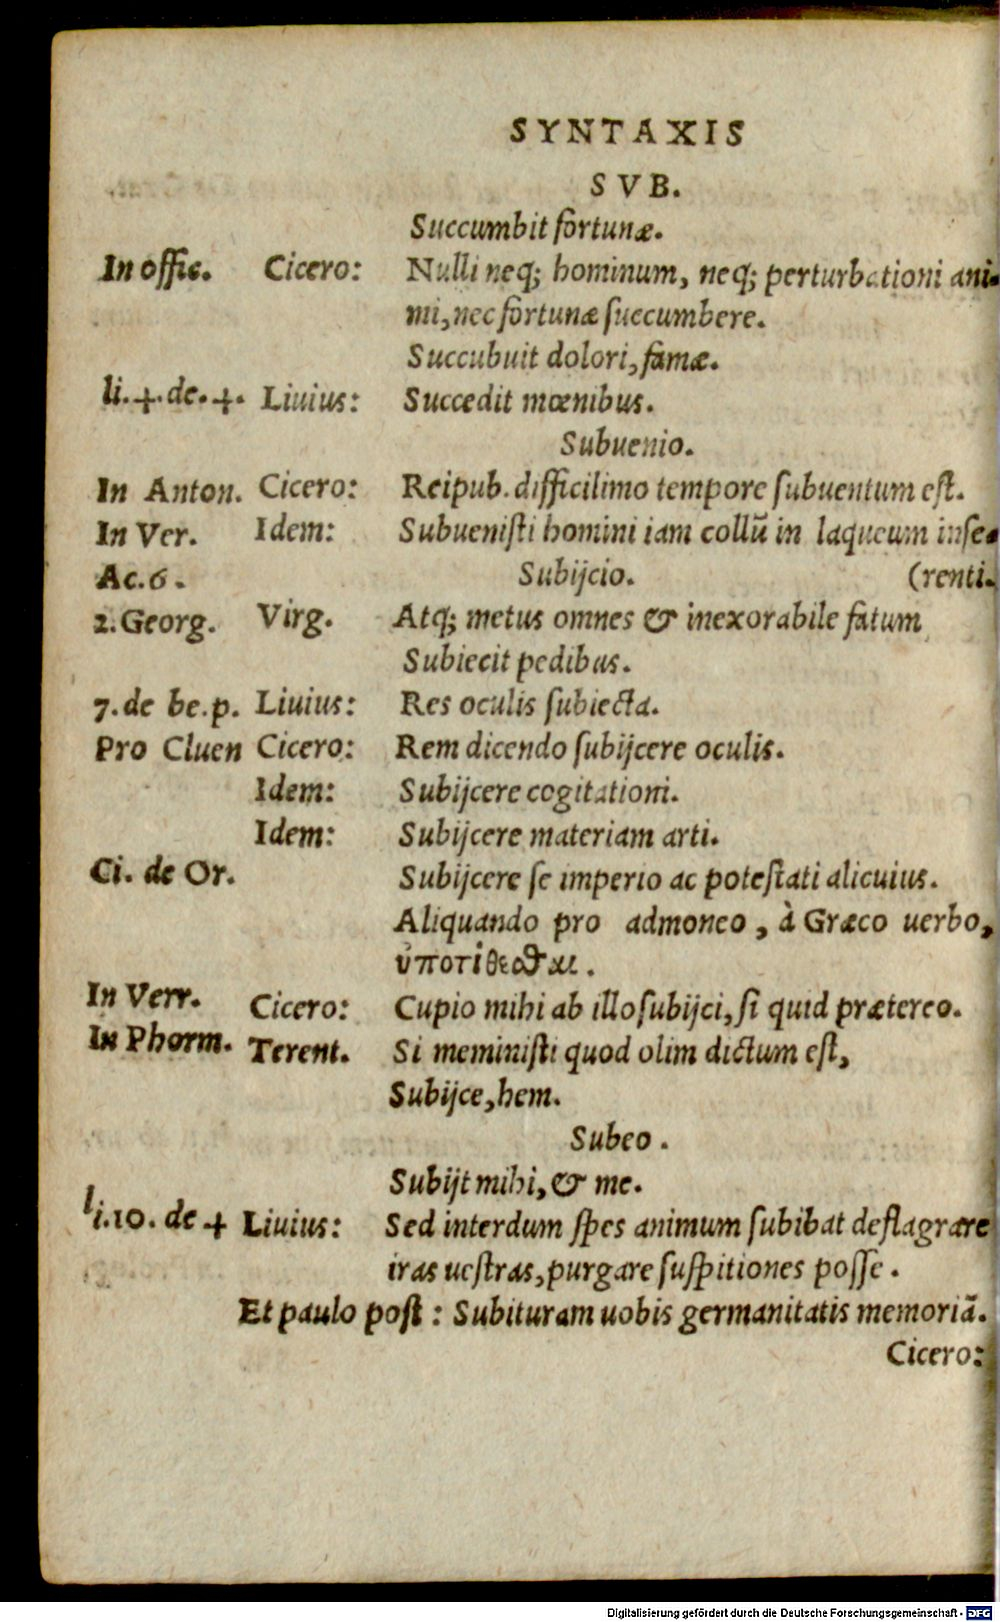 SYNTAXIS
SVB.
Succumbit fortunæ.
In offic. Cicero: Nulli neq; hominum, neq; perturbationi ani-
mi, nec fortunæ succumbere.
Succubuit dolori, famæ.
li.4.de.4. Liuius: Succedit mœnibus.
Subuenio.
In Anton. Cicero: Reipub. difficilimo tempore subuentum est.
In Ver. Idem: Subuenisti homini iam collũ in laqueum inse-
Ac.6. Subijcio. (renti.
2.Georg. Virg. Atq; metus omnes & inexorabile fatum
Subiecit pedibus.
7.de be.p. Liuius: Res oculis subiecta.
Pro Cluen Cicero: Rem dicendo subijcere oculis.
Idem: Subijcere cogitationi.
Idem: Subijcere materiam arti.
Ci. de Or. Subijcere se imperio ac potestati alicuius.
Aliquando pro admoneo, à Græco uerbo,
ὑποτίθεσθαι.
In Verr. Cicero: Cupio mihi ab illo subijci, si quid prætereo.
In Phorm. Terent. Si meministi quod olim dictum est,
Subijce, hem.
Subeo.
Subijt mihi, & me.
li.10. de 4 Liuius: Sed interdum spes animum subibat deflagrare
iras uestras, purgare suspitiones posse.
Et paulo post: Subituram uobis germanitatis memoriã.
Cicero:
Digitalisierung gefördert durch die Deutsche Forschungsgemeinschaft - DFG